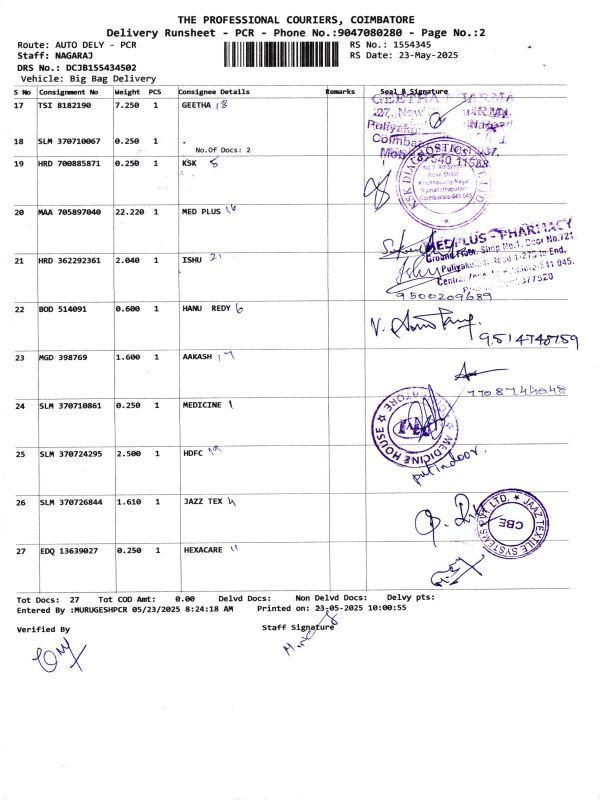 THE PROFESSIONAL COURIERS, COIMBATORE
Delivery Runsheet - PCR - Phone No.:9047080280 - Page No.:2
Route: AUTO DELY - PCR RS No.: 1554345
Staff: NAGARAJ RS Date: 23-May-2025
DRS No.: DCJB155434502
Vehicle: Big Bag Delivery
S No Consignment No Weight PCS Consignee Details Remarks Seal & Signature
17 TSI 8182190 7.250 1 GEETHA 18
GEETHA PHARMA
18 SLM 370710067 0.250 1 .
No.Of Docs: 2
19 HRD 700885871 0.250 1 KSK 5
KSK DIAGNOSTICS PVT. LTD.
Krishnasamy Nagar
Ramanathapuram
Coimbatore-641 045
20 MAA 705897040 22.220 1 MED PLUS 16
MEDPLUS - PHARMACY
Ground Floor, Shop No.1, Door No.121
21 HRD 362292361 2.040 1 ISHU 21
9500209689
22 BOD 514091 0.600 1 HANU REDY 6
9514748759
23 MGD 398769 1.600 1 AAKASH 17
24 SLM 370710861 0.250 1 MEDICINE 1
MEDICINE HOUSE
25 SLM 370724295 2.500 1 HDFC 19
26 SLM 370726844 1.610 1 JAZZ TEX 4
JAAZ TEXTILE SYSTEMS PVT. LTD.
CBE
27 EDQ 13639027 0.250 1 HEXACARE 11
Tot Docs: 27 Tot COD Amt: 0.00 Delvd Docs: Non Delvd Docs: Delvy pts:
Entered By :MURUGESHPCR 05/23/2025 8:24:18 AM Printed on: 23-05-2025 10:00:55
Verified By Staff Signature